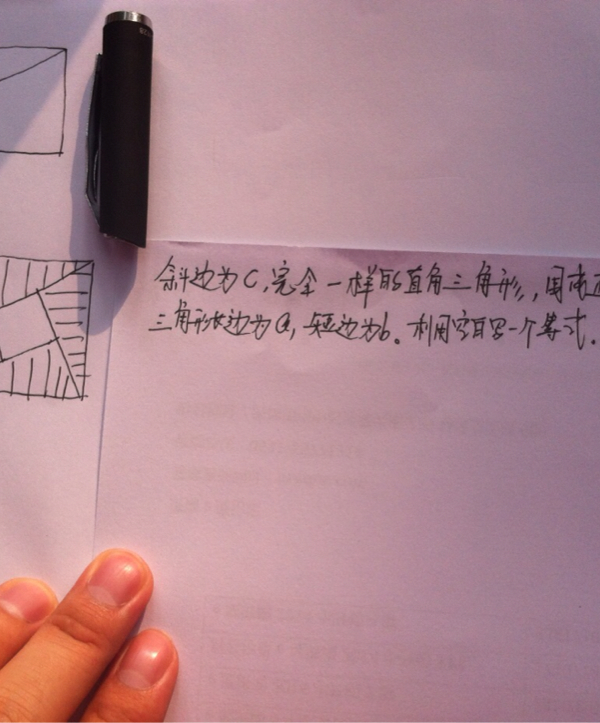 斜边为C,完全一样的直角三角形,用
三角形长边为a,短边为b。利用写一个等式.